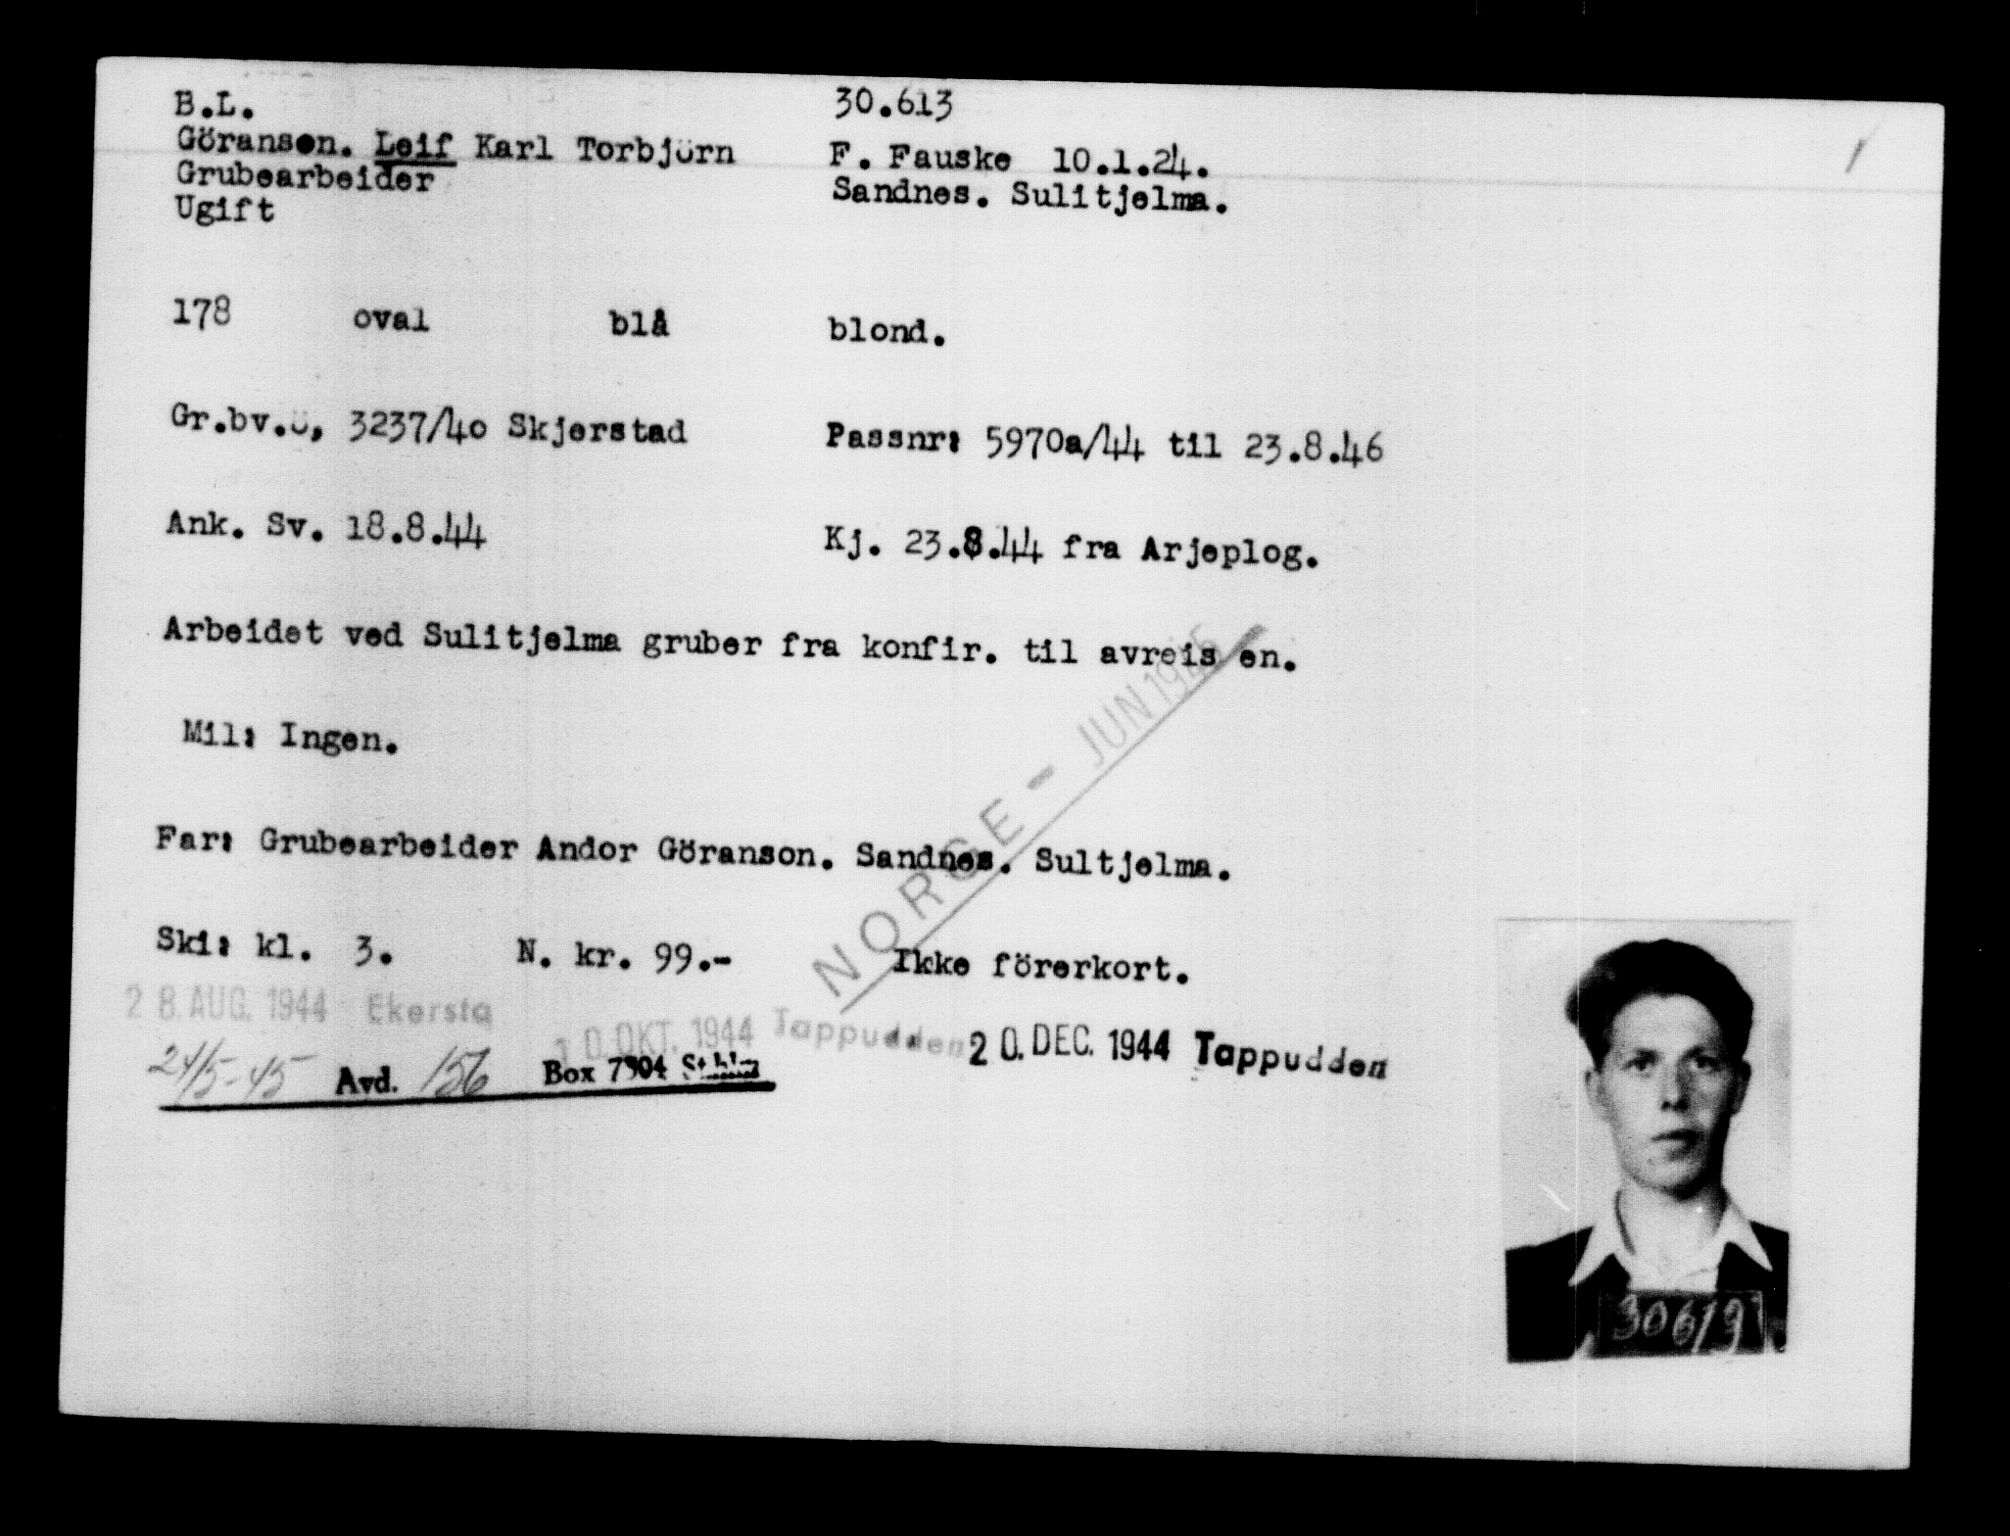 B.L. 30.613
Göranson. Leif Karl Torbjörn F. Fauske 10.1.24.
Grubearbeider Sandnes. Sulitjelma.
Ugift
178 oval blå blond.
Gr.bv.ö, 3237/40 Skjerstad Passnr: 5970a/44 til 23.8.46
Ank. Sv. 18.8.44 Kj. 23.8.44 fra Arjeplog.
Arbeidet ved Sulitjelma gruber fra konfir. til avreis en.
NORGE - JUN 1945
Mil: Ingen.
Far: Grubearbeider Andor Göranson. Sandnes. Sultjelma.
Ski: kl. 3. N. kr. 99.- Ikke förerkort.
28 AUG. 1944 Ekersta 10 OKT. 1944 Tappudden 20. DEC. 1944 Tappudden
24/5-45 Avd. 156 Box 7904 Sthlm
30613